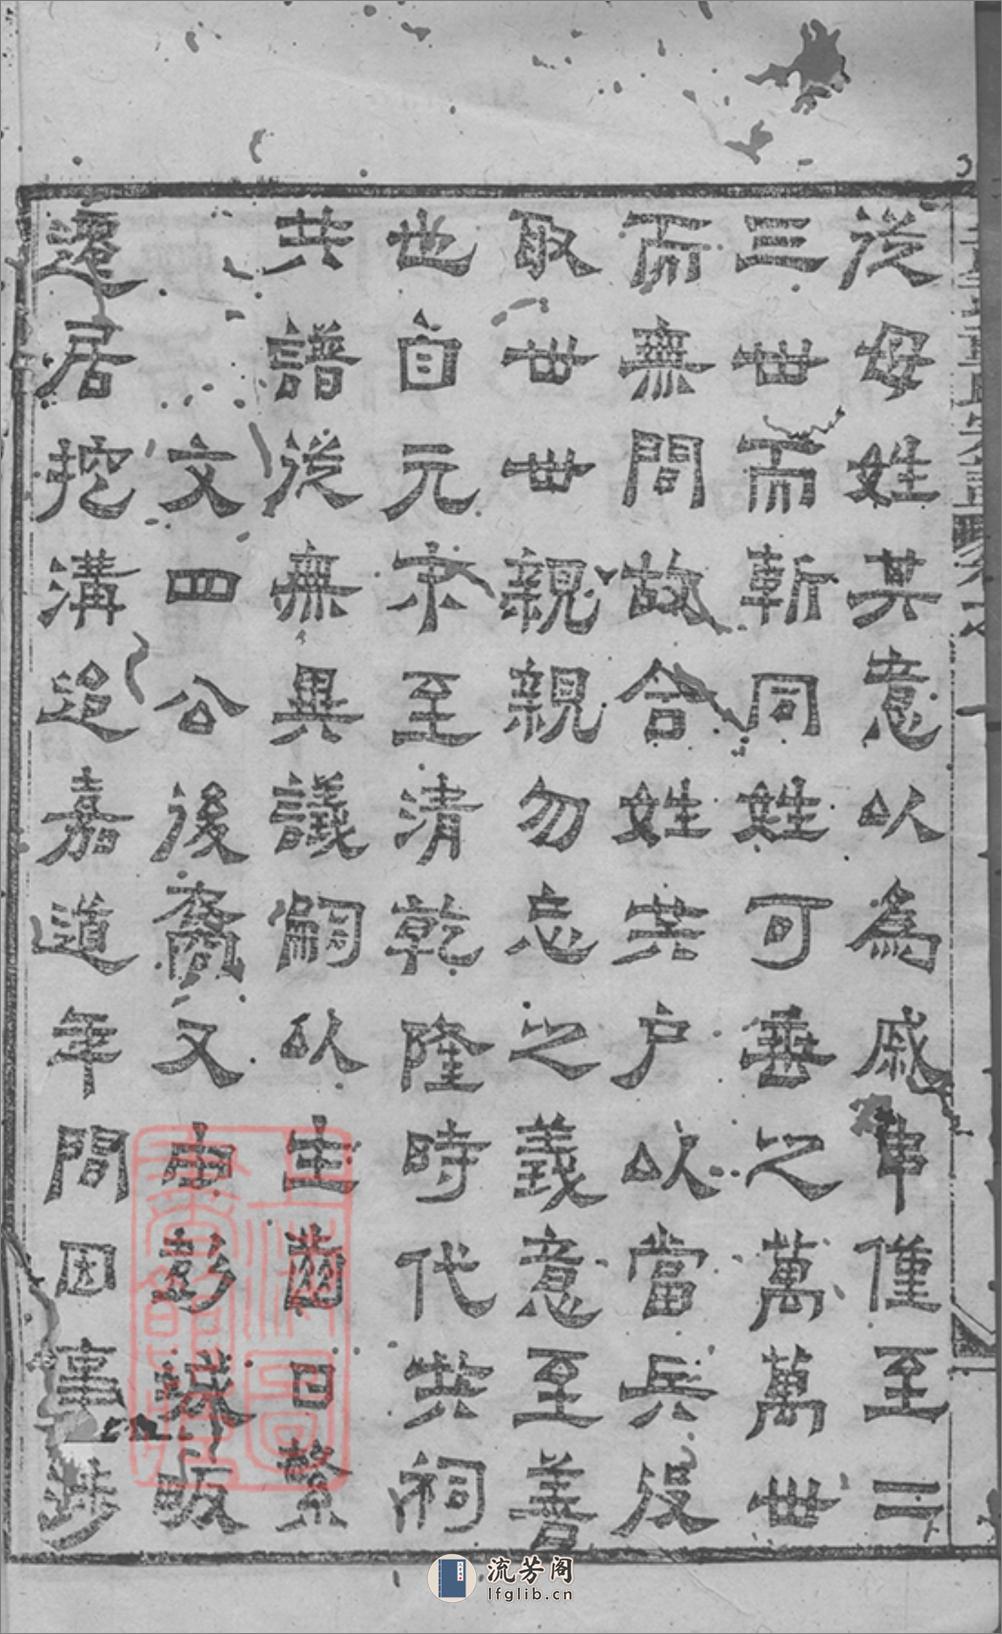 從母姓其意以為戚串僅至二
三世而斬同姓可垂之萬萬世
而無間故合姓共户以當兵役
取世世親親勿忘之義意至善
也自元末至清乾隆時代共祠
共譜從無異議嗣以生齒日繁
文四公後裔又由彭城坂
遷居挖溝迨嘉道年間因事涉
流芳阁
lfglib.cn